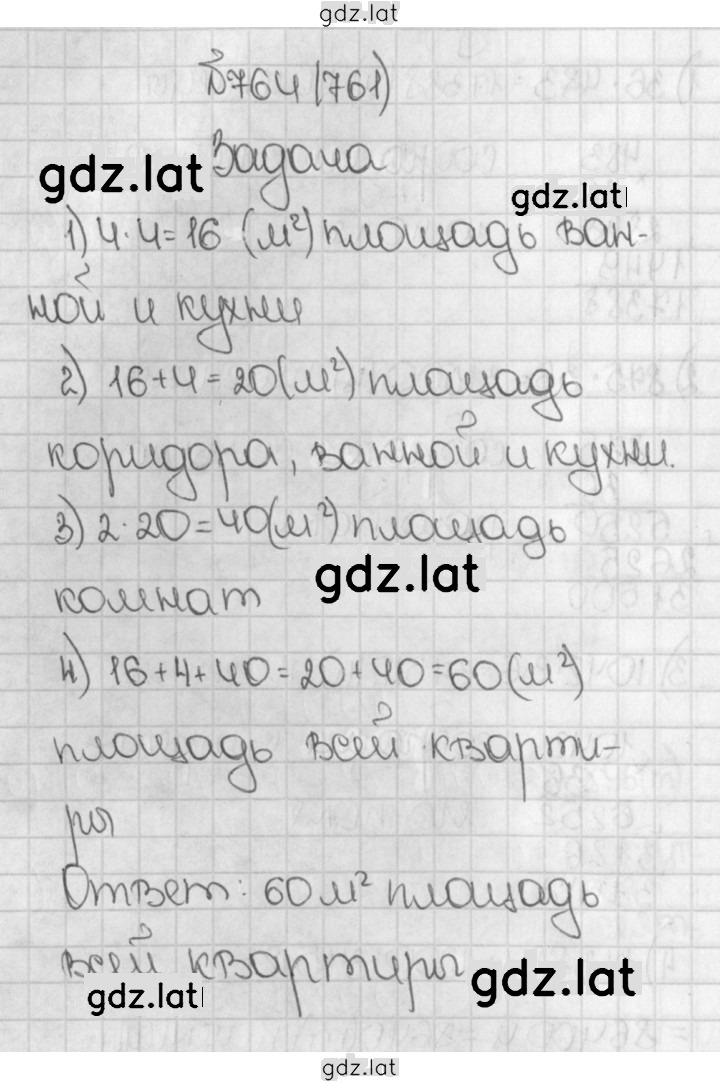 gdz.lat
№764 (761)
Задача
gdz.lat
gdz.lat
1) 4·4=16 (м²) площадь ван-
ной и кухни
2) 16+4=20(м²) площадь
коридора, ванной и кухни.
3) 2·20=40(м²) площадь
gdz.lat
комнат
4) 16+4+40=20+40=60(м²)
площадь всей кварти-
ры
Ответ: 60 м² площадь
всей квартиры
gdz.lat
gdz.lat
gdz.lat